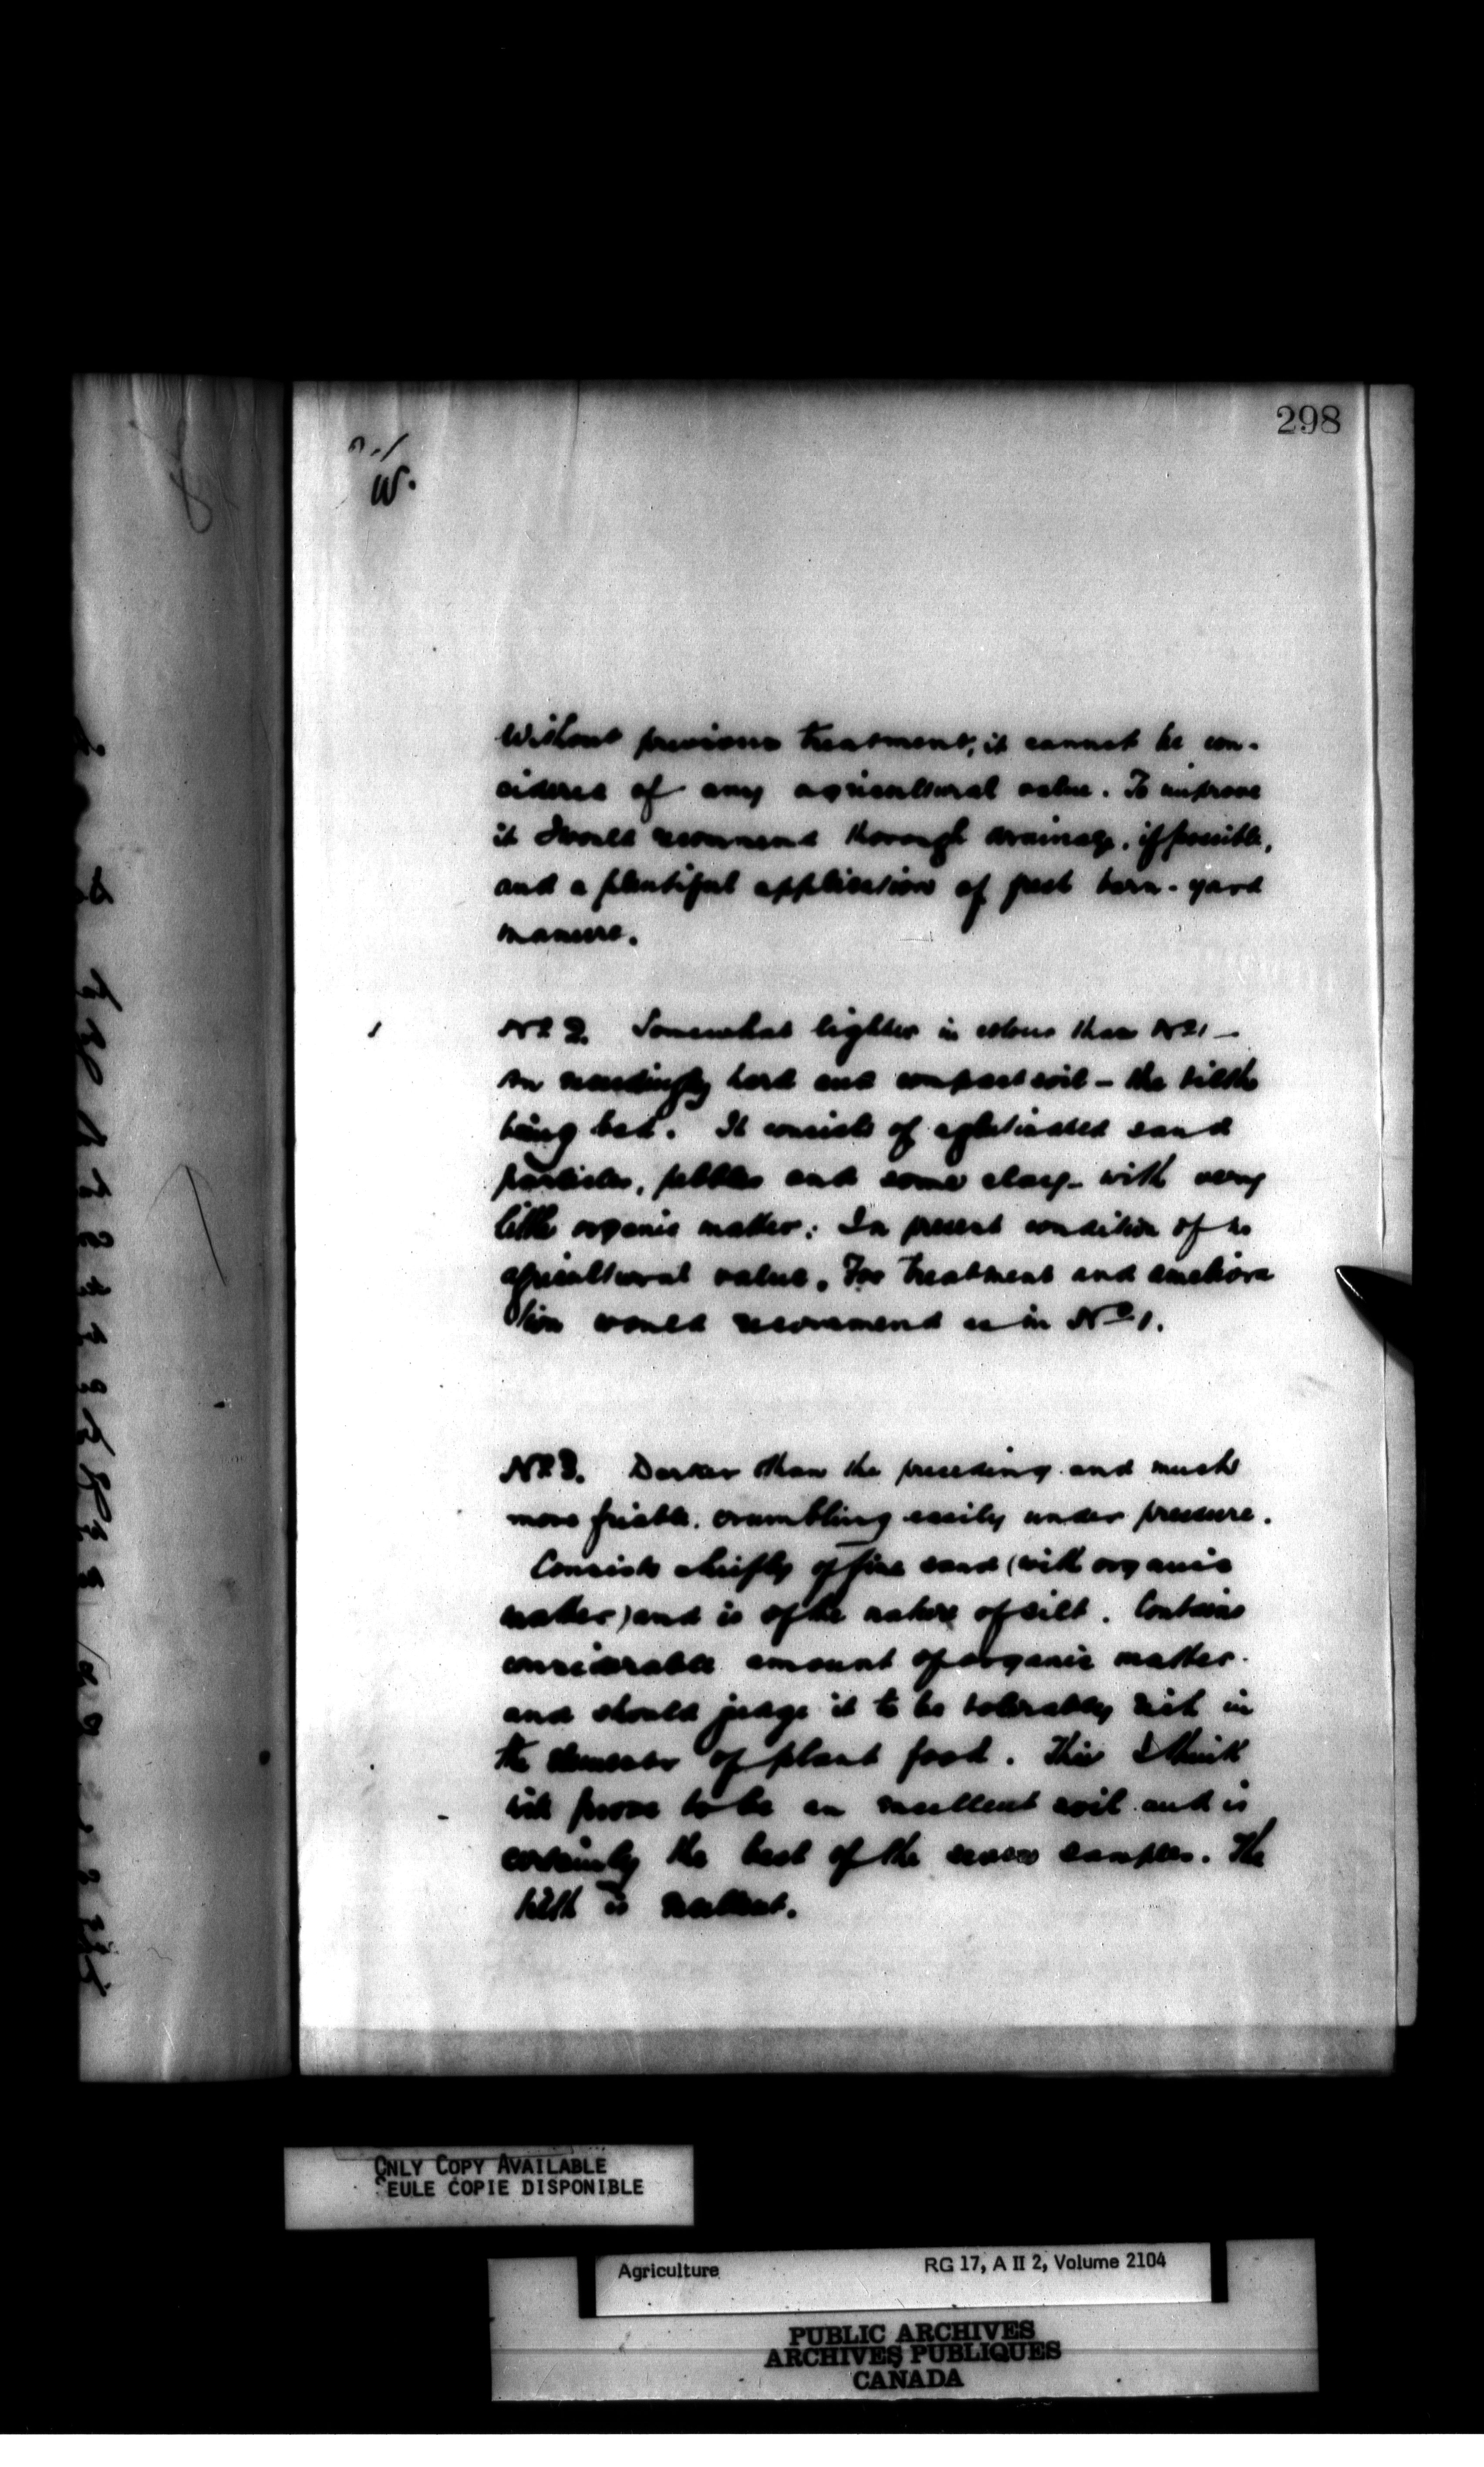 298
W.
Without previous treatment, it cannot be con-
sidered of any agricultural value. To improve
it I would recommend thorough drainage, if possible,
and a plentiful application of peat barn-yard
manure.
No 2. Somewhat lighter in colour than No 1 —
An exceedingly hard and compact soil — the tilth
being bad. It consists of agglutinated sand
particles, pebbles and some clay - with very
little organic matter. In present condition of no
agricultural value. For treatment and ameliora
tion would recommend as in No 1.
No 3. Darker than the preceding and much
more friable, crumbling easily under pressure.
Consists chiefly of fine sand (with organic
matter) and is of the nature of silt. Contains
considerable amount of organic matter.
and should judge it to be tolerably rich in
the elements of plant food. This I think
will prove to be an excellent soil and is
certainly the best of the seven samples. The
tilth is excellent.
ONLY COPY AVAILABLE
SEULE COPIE DISPONIBLE
Agriculture RG 17, A II 2, Volume 2104
PUBLIC ARCHIVES
ARCHIVES PUBLIQUES
CANADA